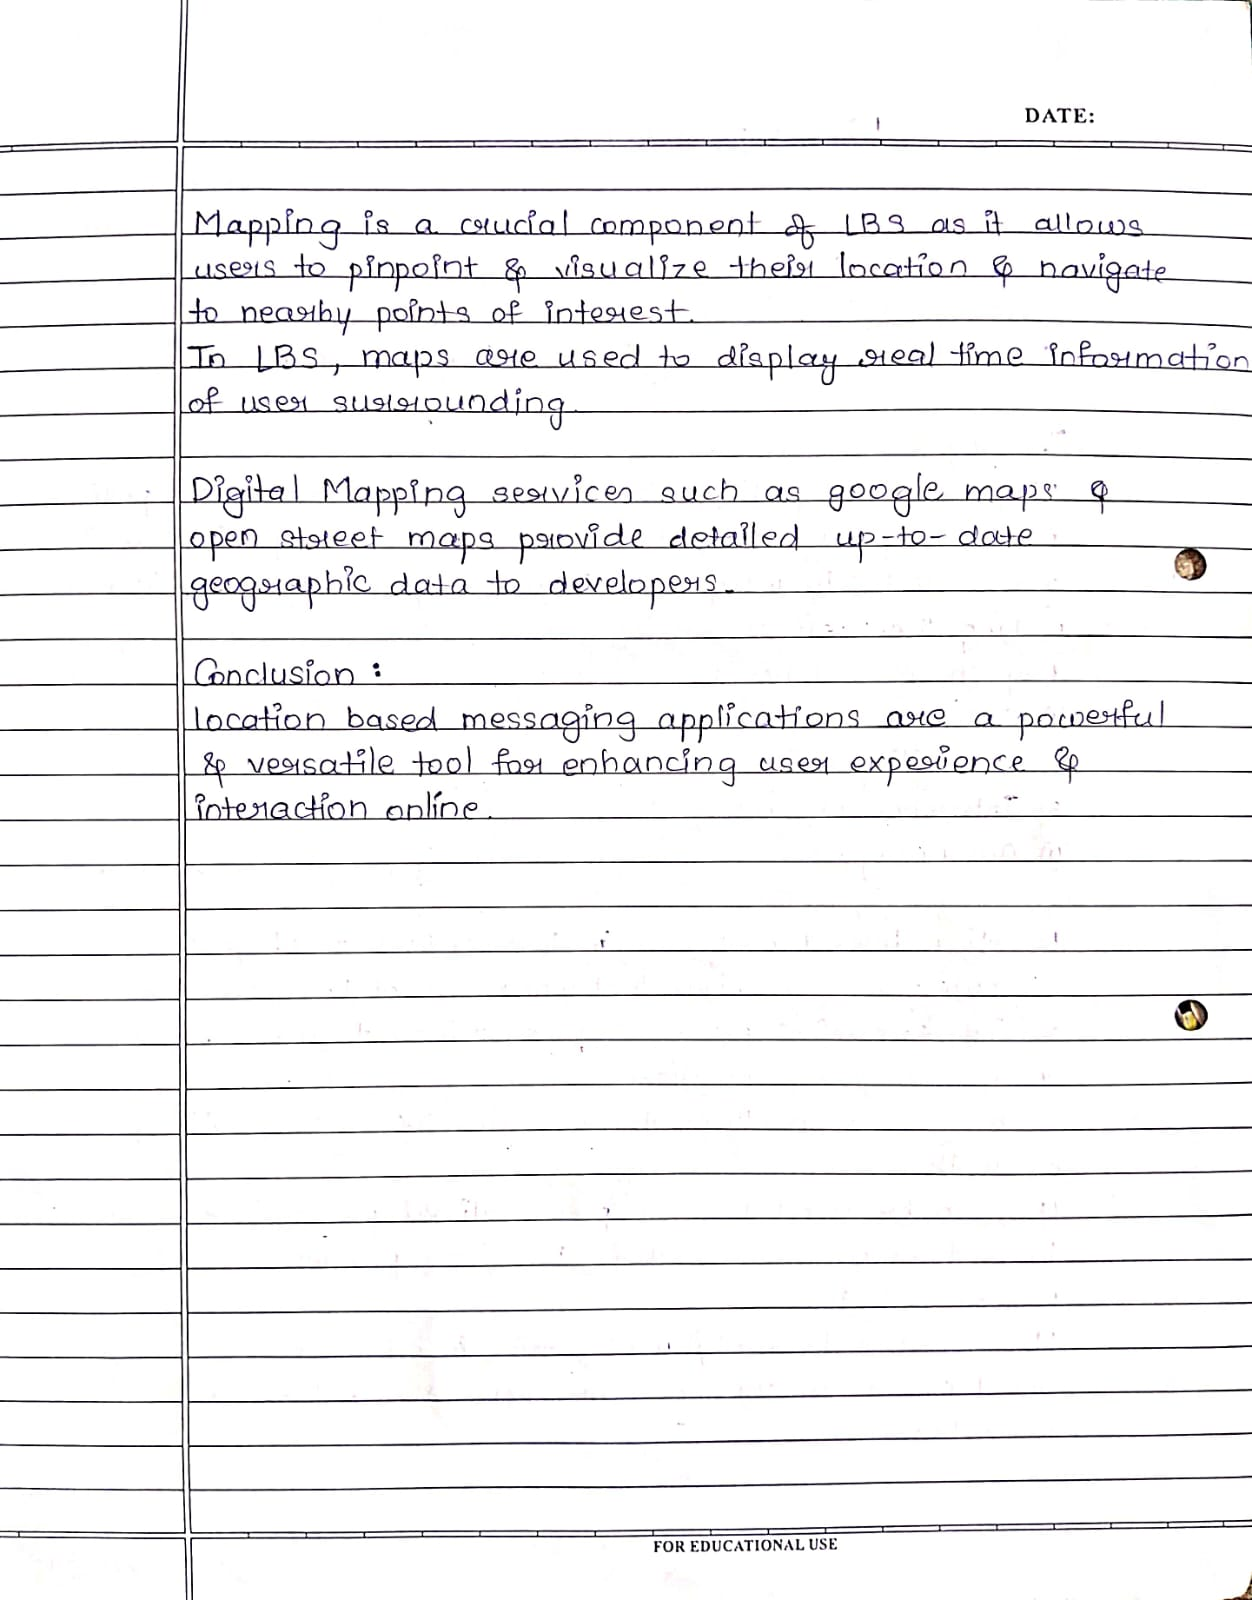 DATE:
Mapping is a crucial component of LBS as it allows
users to pinpoint & visualize their location & navigate
to nearby points of interest.
In LBS, maps are used to display real time information
of user surrounding.
Digital Mapping services such as google maps &
open street maps provide detailed up-to-date
geographic data to developers.
Conclusion :
location based messaging applications are a powerful
& versatile tool for enhancing user experience &
interaction online.
FOR EDUCATIONAL USE